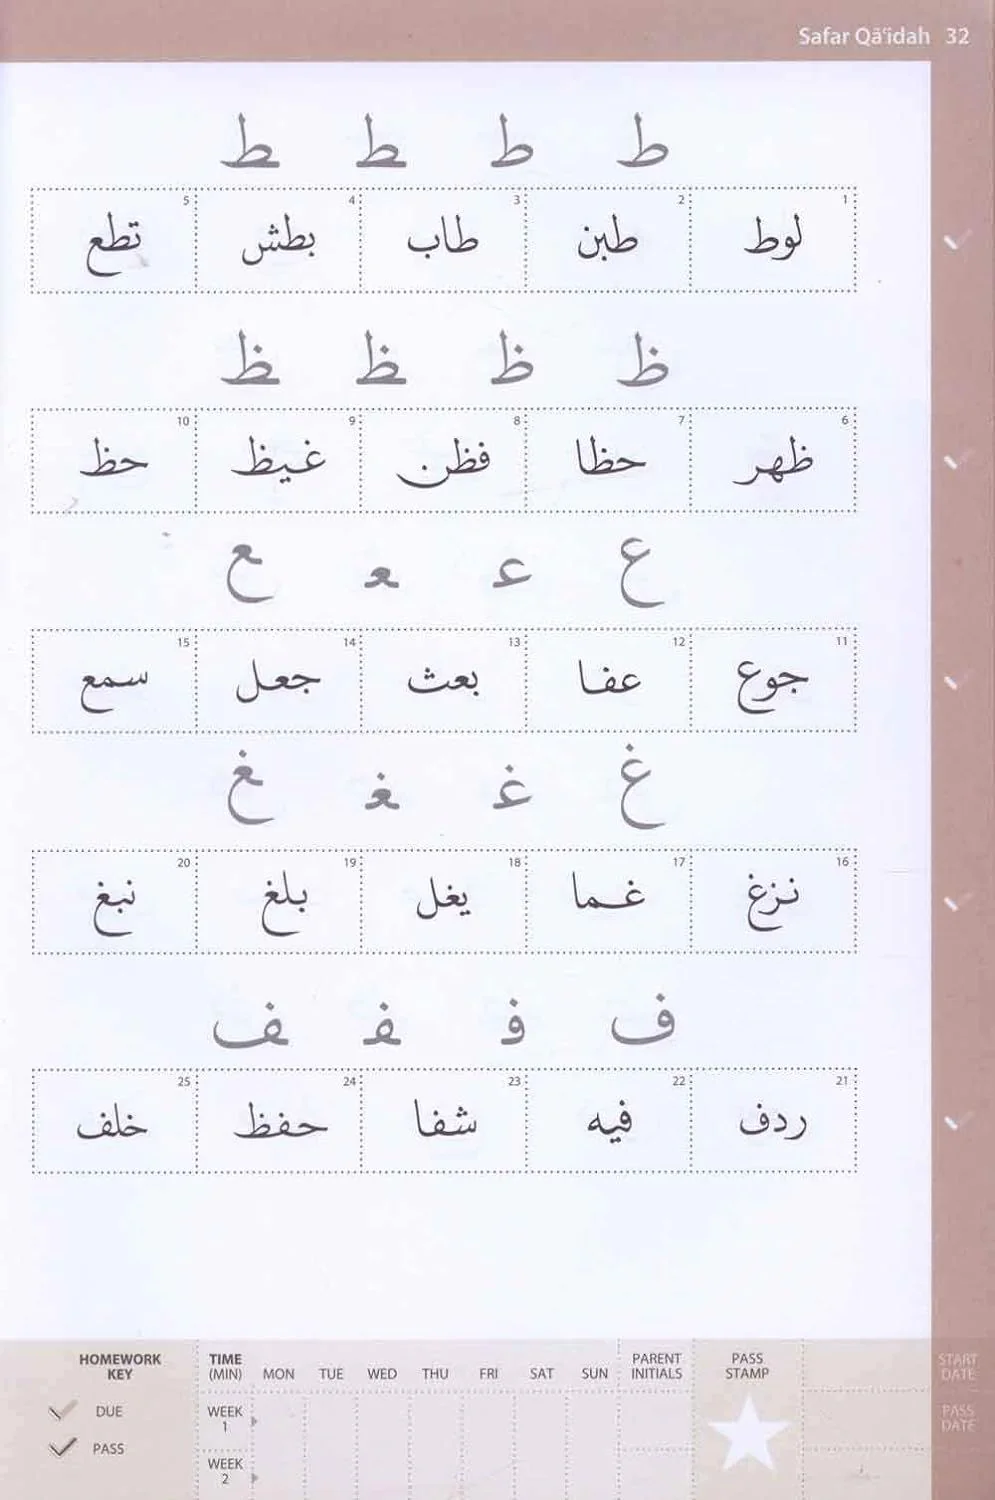 Safar Qāʿidah 32
ط ط ـطـ ـط
1 لوط 2 طبن 3 طاب 4 بطش 5 تطع
ظ ظ ـظـ ـظ
6 ظهر 7 حظا 8 فظن 9 غيظ 10 حظ
ع عـ ـعـ ـع
11 جوع 12 عفا 13 بعث 14 جعل 15 سمع
غ غـ ـغـ ـغ
16 نزغ 17 غما 18 يغل 19 بلغ 20 نبغ
ف فـ ـفـ ـف
21 ردف 22 فيه 23 شفا 24 حفظ 25 خلف
HOMEWORK KEY
DUE
PASS
TIME (MIN) MON TUE WED THU FRI SAT SUN PARENT INITIALS PASS STAMP START DATE
WEEK 1 PASS DATE
WEEK 2